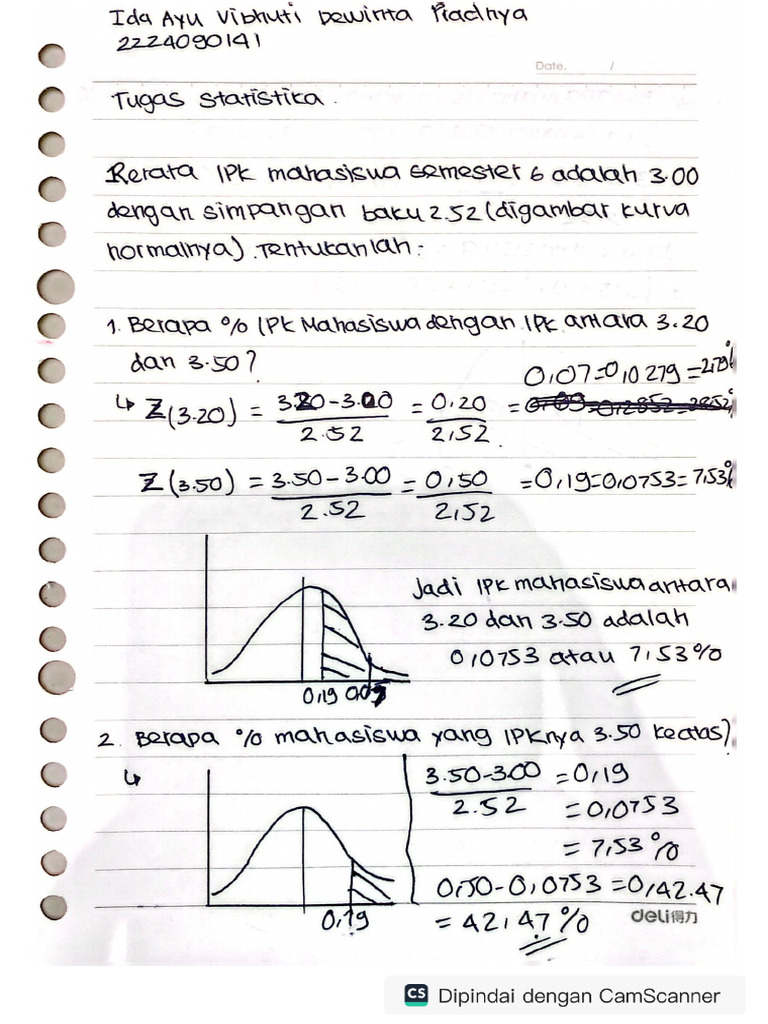 Ida Ayu Vibhuti Dewinta Pradnya
2224090141
Date. /
Tugas Statistika.
Rerata IPK mahasiswa semester 6 adalah 3.00
dengan simpangan baku 2.52 (digambar kurva
normalnya). Tentukanlah:
1. Berapa % IPK Mahasiswa dengan IPK antara 3.20
dan 3.50?
0,07=0,0279=2,79%
↳ Z(3.20) = 3.20-3.00 / 2.52 = 0.20 / 2,52 =
Z(3.50) = 3.50-3.00 / 2.52 = 0,50 / 2,52 =0,19=0,0753=7,53%
Jadi IPK mahasiswa antara
3.20 dan 3.50 adalah
0,0753 atau 7,53%
0,19 0,07
2. Berapa % mahasiswa yang IPKnya 3.50 keatas?
↳ 3.50-3.00 / 2.52 = 0,19
= 0,0753
= 7,53%
0,50-0,0753 = 0,42.47
= 42,47%
0,19
deli得力
CS Dipindai dengan CamScanner